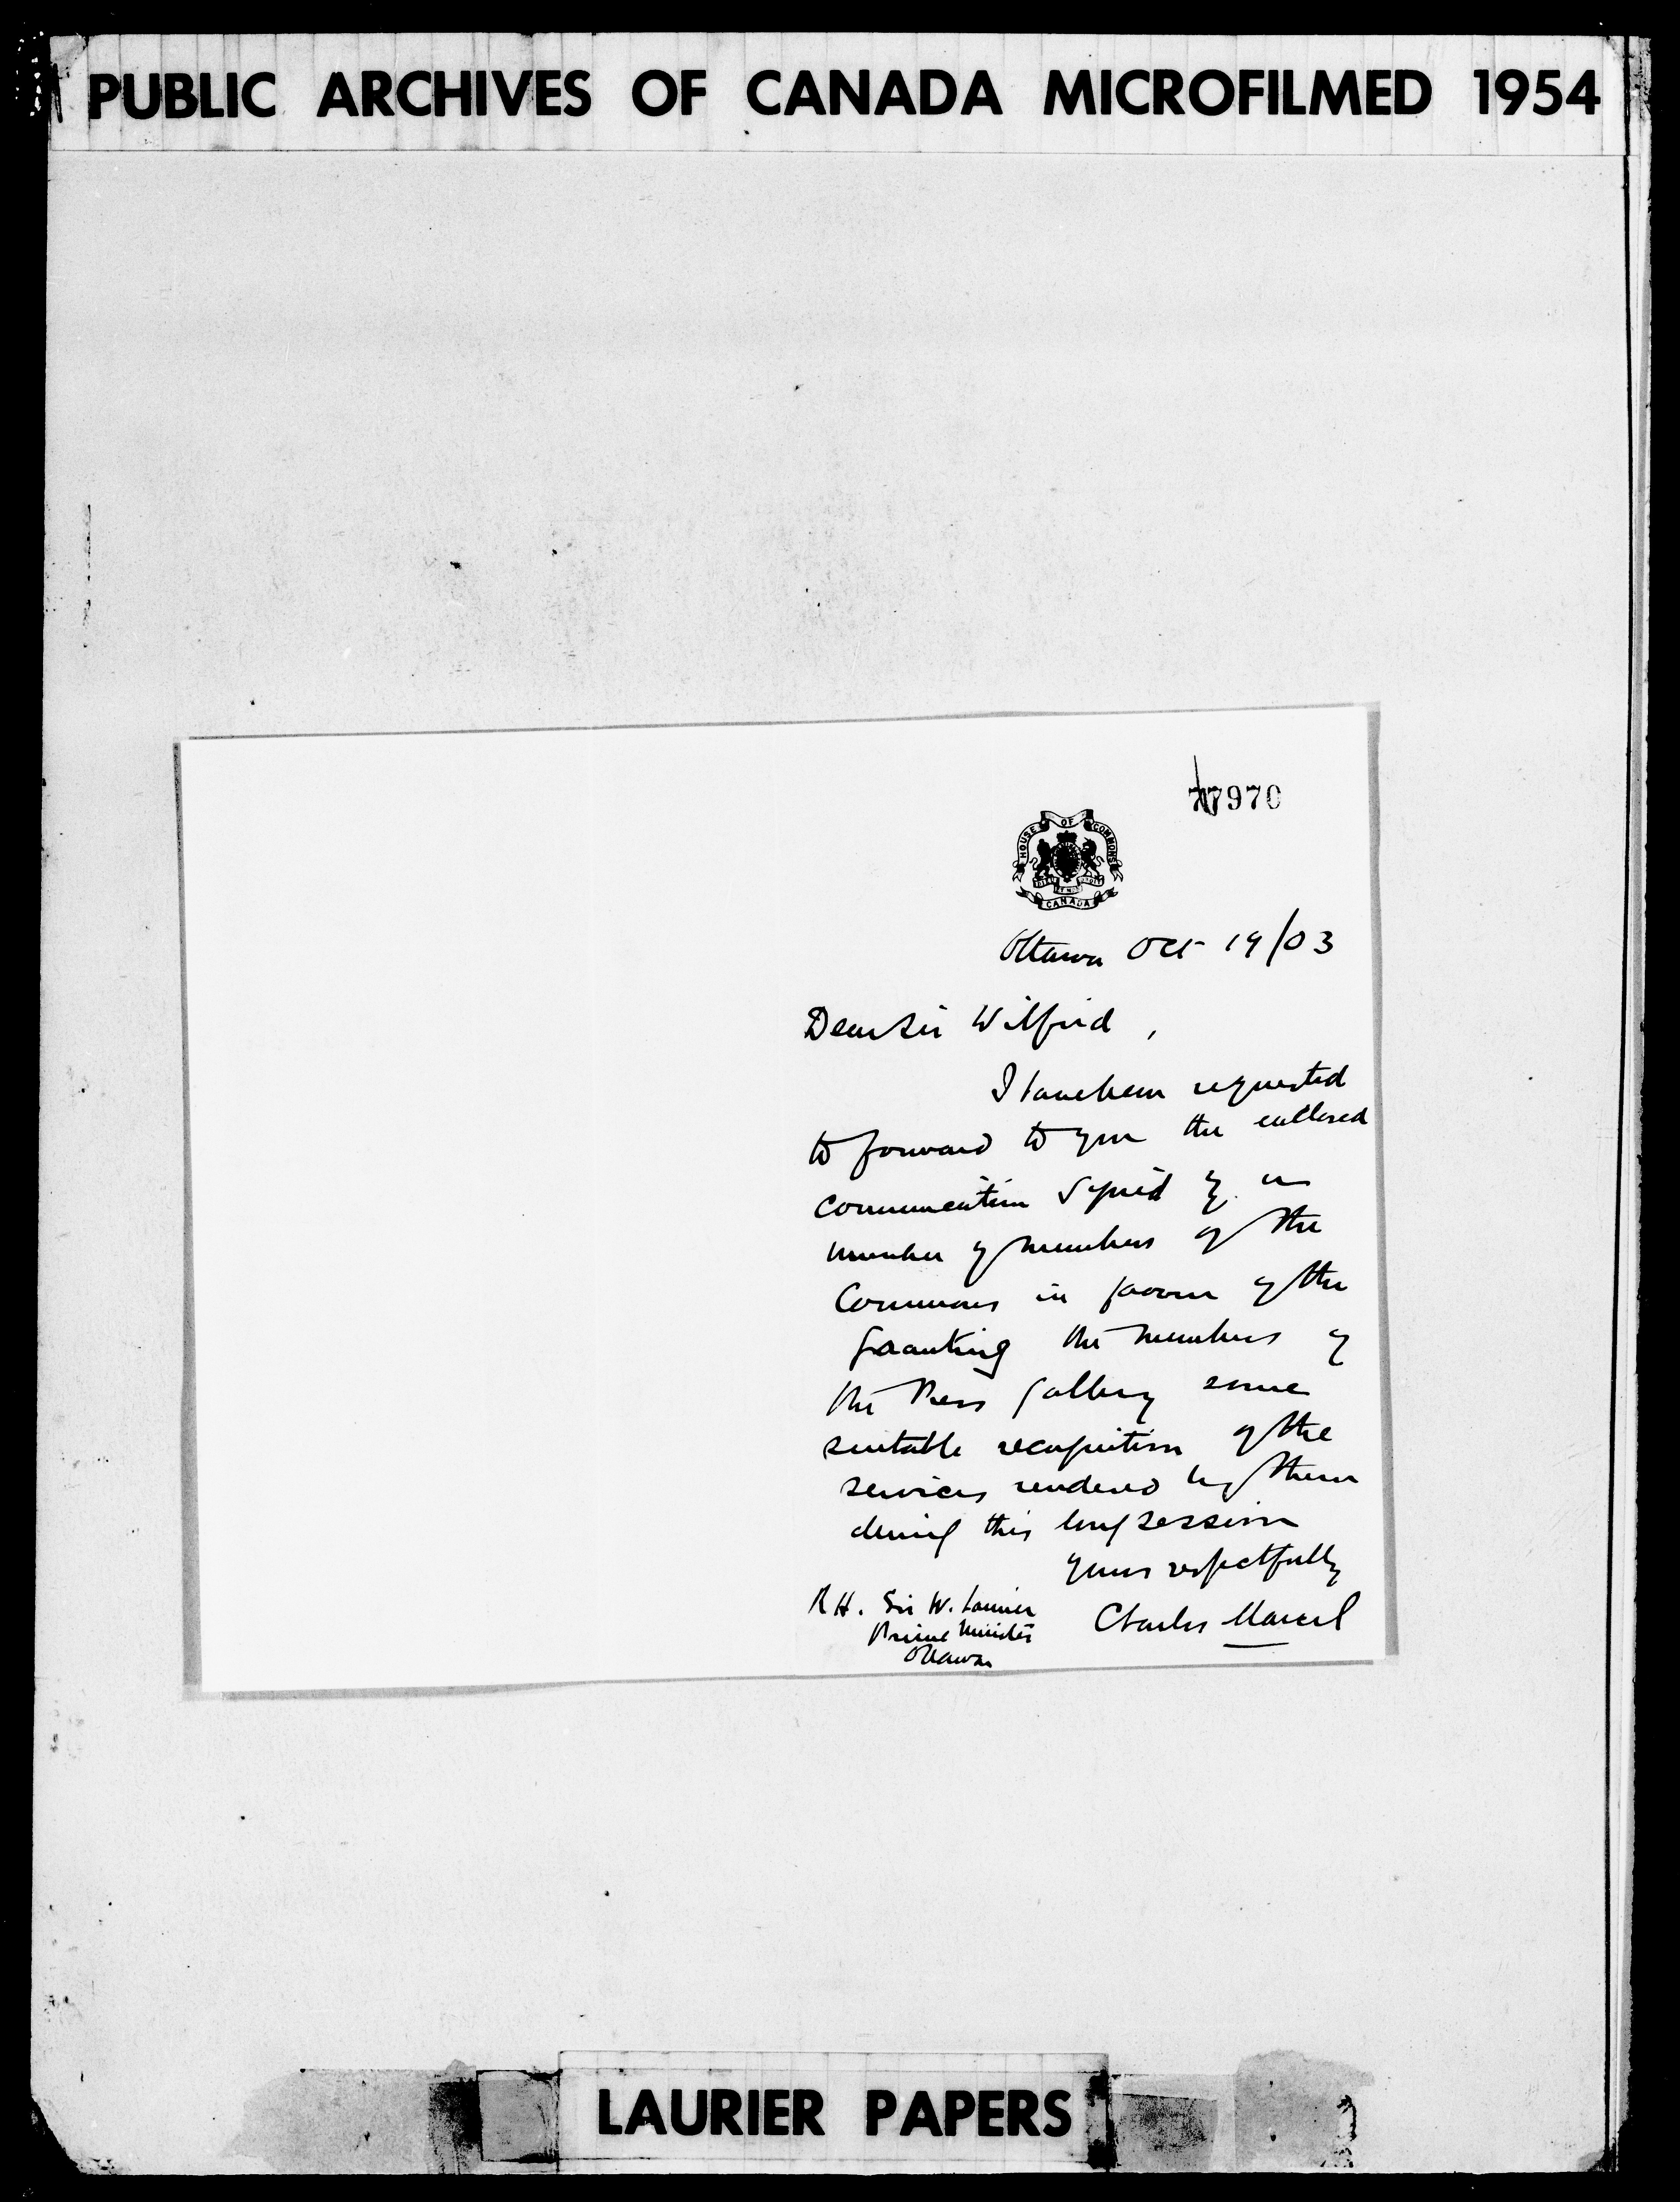 PUBLIC ARCHIVES OF CANADA MICROFILMED 1954
77970
HOUSE OF COMMONS
CANADA
Ottawa Oct 19/03
Dear Sir Wilfrid,
I have been requested
to forward to you the enclosed
communication signed by a
number of members of the
Commons in favour of the
granting the members of
the Press Gallery some
suitable recognition of the
services rendered by them
during this long session
Yours respectfully
Charles Marcil
R H. Sir W. Laurier
Prime Minister
Ottawa
LAURIER PAPERS